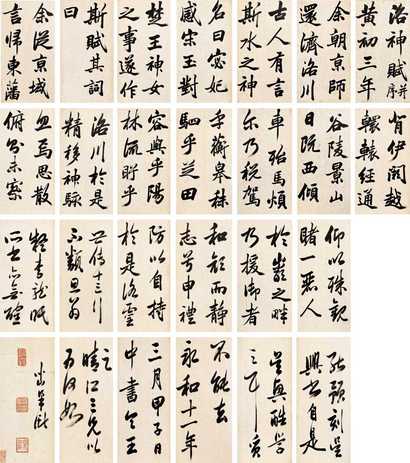 洛神賦并序
黃初三年
余朝京師
還濟洛川
古人有言
斯水之神
名曰宓妃
感宋玉對
楚王神女
之事遂作
斯賦其詞
曰
余從京域
言歸東藩
背伊闕越
轘轅經通
谷陵景山
日既西傾
車殆馬煩
尔乃稅駕
乎蘅皋秣
駟乎芝田
容與乎陽
林流眄乎
洛川於是
精移神駭
忽焉思散
俯則未察
仰以殊觀
睹一麗人
於巖之畔
乃援御者
和顏而靜
志兮申禮
防以自持
於是洛靈
世傳十三行
不類
自是
不能去
永和十一年
三月甲子日
中書令王
之
晴江三兄以
為何如
笪重光